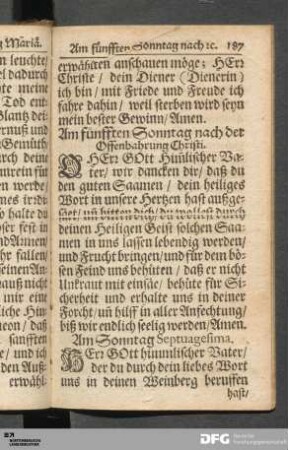 g Mariä.
n leuchte/
el dadurch
hte meine
Tod ent
Glantz dei-
ernuß und
Gemüth/
urch deine
unrein für
en werde/
so halte du
ser fest in
nd Amen/
hr fallen/
seinen An-
hauß nicht
mir eine
liche Hin
neon/ daß
sanfften
e/ und ich
den Auß-
erwähl-
Am fünfften Sonntag nach ꝛc. 187
erwählten anschauen möge; HErr
Christe/ dein Diener (Dienerin)
ich bin/ mit Friede und Freude ich
fahre dahin/ weil sterben wird seyn
mein bester Gewinn/ Amen.
Am fünfften Sonntag nach der
Offenbahrung Christi.
O HErr GOtt Himlischer Va-
ter/ wir dancken dir/ daß du
den guten Saamen/ dein heiliges
Wort in unsere Hertzen hast außge-
säet/ uñ bitten dich/ du wollest durch
deinen Heiligen Geist solchen Saa-
men in uns lassen lebendig werden/
und Frucht bringen/ und für dem bö-
sen Feind uns behüten/ daß er nicht
Unkraut mit einsäe/ behüte für Si-
cherheit und erhalte uns in deiner
Forcht/ uñ hilff in aller Anfechtung/
biß wir endlich seelig werden/ Amen.
Am Sonntag Septuagesima.
HErr GOtt himmlischer Vater/
der du durch dein liebes Wort
uns in deinen Weinberg beruffen
hast/
DFG